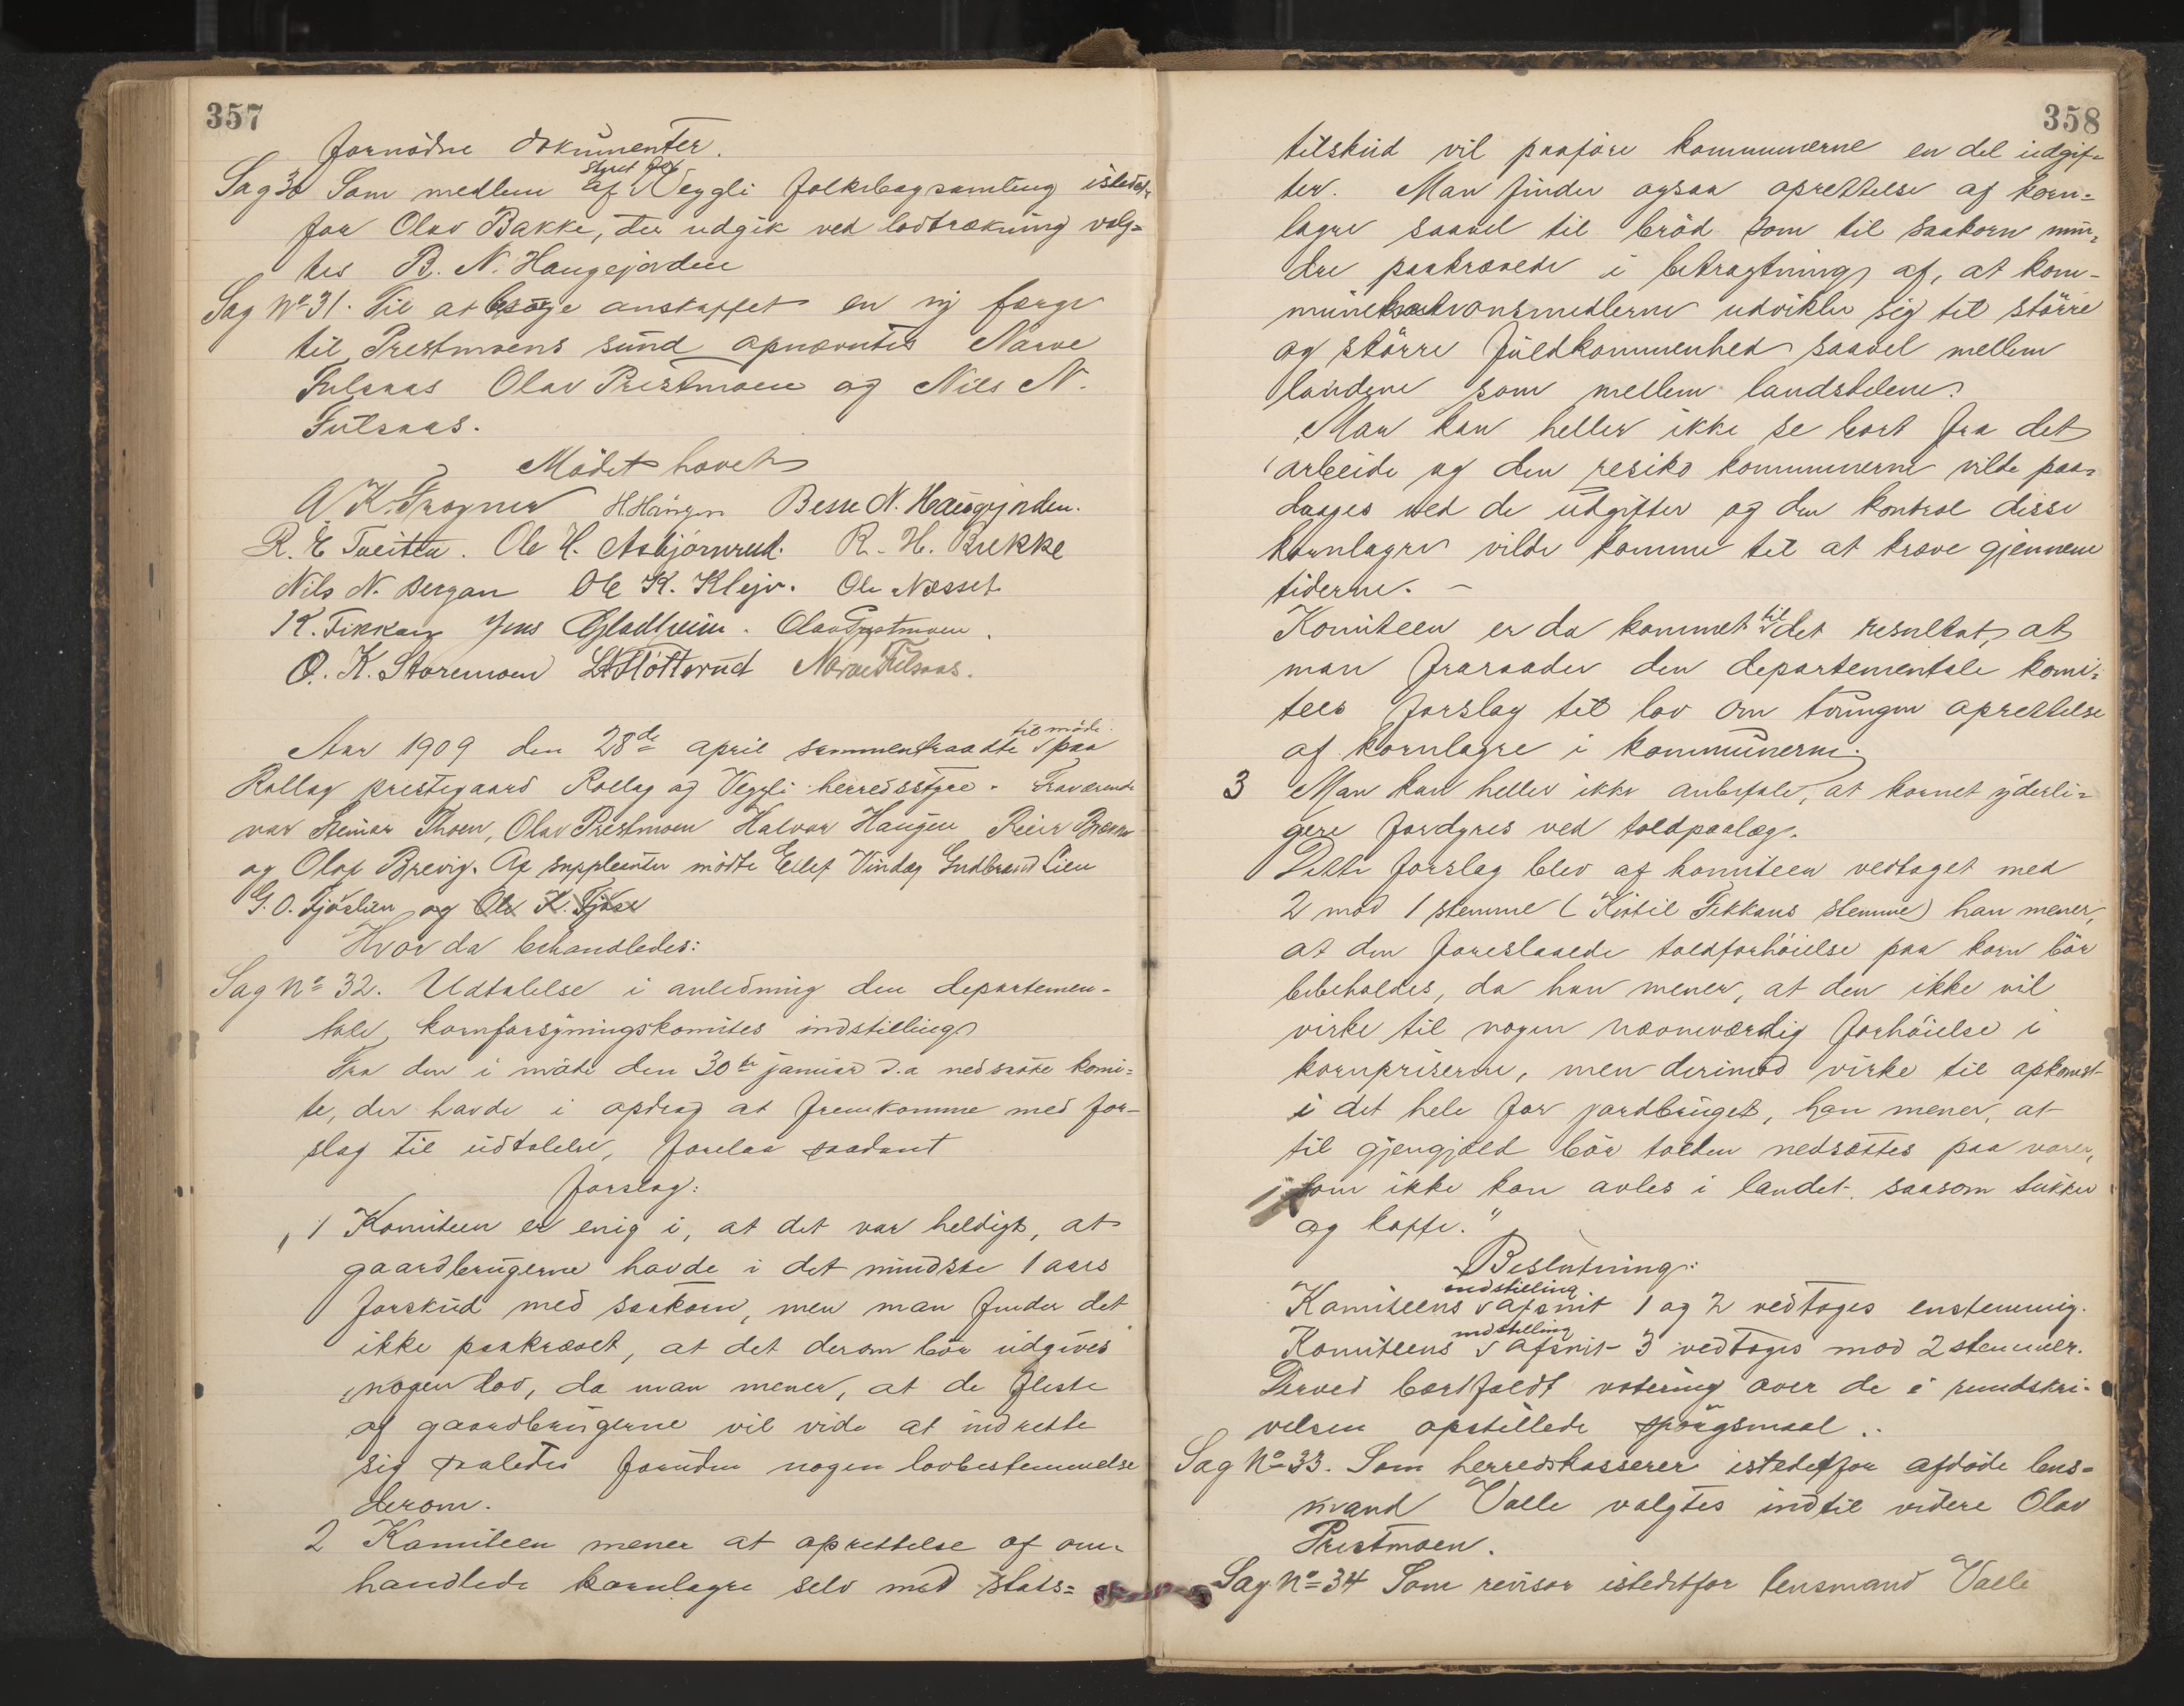 357
fornødne dokumenter.
Sag 30 Som medlem af styret for Veggli folkebogsamling istedet-
for Olav Bakke, der udgik ved lodtrækning valg=
tes B. N. Haugejorden
Sag No 31. Til at besørge anskaffet en ny færge
til Prestmoens sund opnævntes Narve
Fulsaas Olav Prestmoen og Nils N.
Fulsaas.
Mødet hævet
A. K. Trogner H Haugen Besse N. Haugejorden.
R. E Tveiten. Ole H. Asbjørnrud. R. H. Brekke
Nils N. Bergan Ole K. Klejv. Ole Næsset
K. Fikkan Jens Gladheim. Olav Prestmoen.
O. K. Storemoen L Sløttsrud Narve Fulsaas.
Aar 1909 den 28de april sammentraadte til møde paa
Rollag prestegaard Rollag og Veggli herredsstyre. Fraværende
var Steinar Thoen, Olav Prestmoen Halvor Haugen Reier Brække
og Olaf Brevig. Af suppleanter mødte Ellef Vindeg Gudbrand Lien
G. O. Fjøslien og Ole K. Fjøse
Hvor da behandledes:
Sag No 32. Udtalelse i anledning den departemen-
tale kornforsyningskomites indstilling
Fra den i møde den 30te januar d.a nedsatte komi=
te, der havde i opdrag at fremkomme med for-
slag til udtalelse, forelaa saadant
forslag:
„1 Komiteen er enig i, at det var heldigt, at
gaardbrugerne havde i det mindste 1 aars
forskud med saakorn, men man finder det
ikke paakrævet, at det derom bør udgives
nogen lov, da man mener, at de fleste
af gaardbrugerne vil vide at indrette
sig saaledes foruden nogen lovbestemmelse
derom.
2 Komiteen mener at oprettelse af om-
handlede kornlagre selv med stats=
358
tilskud vil paaføre kommunerne en del udgif=
ter. Man finder ogsaa oprettelse af korn=
lagre saavel til brød som til saakorn min=
dre paakrævede i betragtning af, at kom-
munikationsmidlerne udvikler sig til større
og større fuldkommenhed saavel mellem
landene som mellem landsdelene.
Man kan heller ikke se bort fra det
arbeide og den resiko kommunerne vilde paa=
drages ved de udgifter og den kontrol disse
kornlagre vilde komme til at kræve gjennem
tiderne. –
Komiteen er da kommet til det resultat, at
man fraraader den departementale komi=
tees forslag til lov om tvungen oprettelse
af kornlagre i kommunerne.
3 Man kan heller ikke anbefale, at kornet yderli=
gere fordyres ved toldpaalæg.
Dette forslag blev af komiteen vedtaget med
2 mod 1 stemme (Kittil Fikkans stemme) han mener,
at den foreslaaede toldforhøielse paa korn bør
bibeholdes, da han mener, at den ikke vil
virke til nogen nævneværdig forhøielse i
kornpriserne, men derimod virke til opkomst
i det hele for jordbruget, han mener, at
til gjengjæld bør tolden nedsættes paa varer,
som ikke kan avles i landet, saasom sukker
og kaffe."
Beslutning:
Komiteens indstilling afsnit 1 og 2 vedtoges enstemmig.
Komiteens indstilling afsnit 3 vedtoges mod 2 stemmer.
Derved bortfaldt votering over de i rundskri-
velsen opstillede spørgsmaal.
Sag No 33. Som herredskasserer istedetfor afdøde lens=
mand Valle valgtes indtil videre Olav
Prestmoen.
Sag No 34 Som revisor istedetfor lensmand Valle